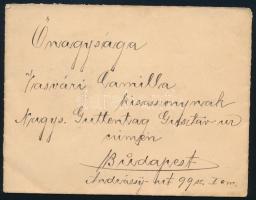 Őnagysága
Vasvári Camilla
kisasszonynak
Nagys. Guttentag Gusztáv ur
címén
Budapest
Andrássy-út 99 sz. I em.